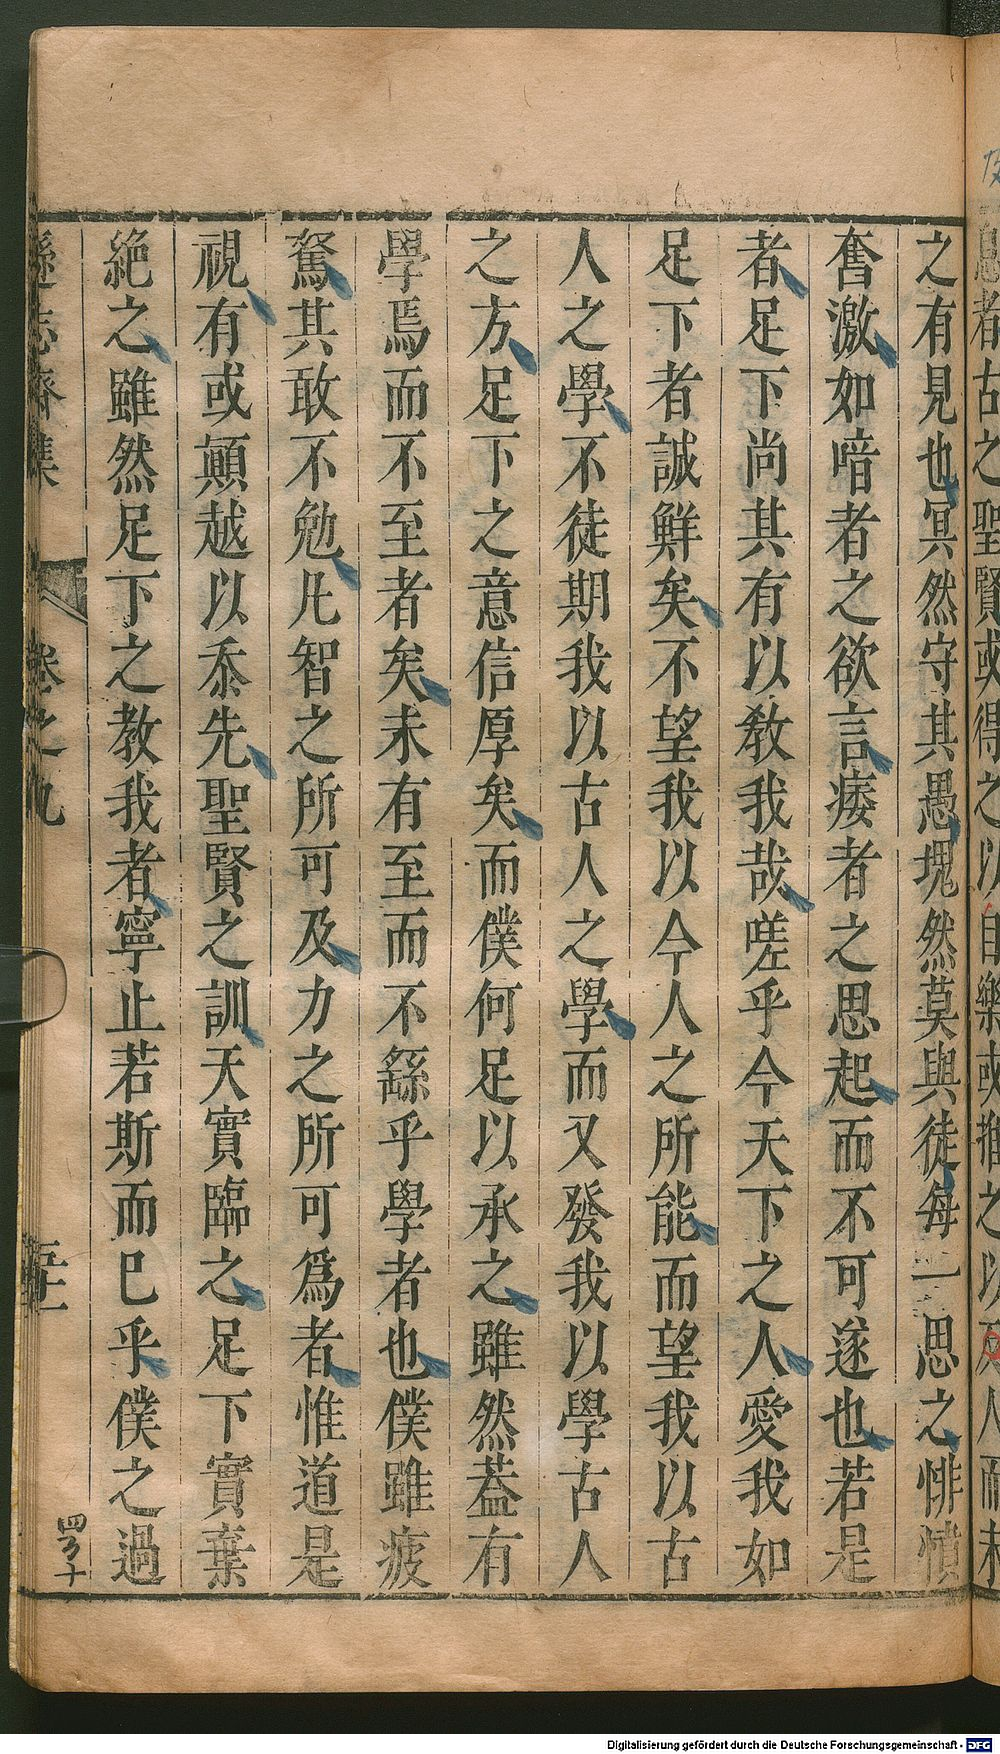 愚者古之聖賢或得之以自樂或推之以及人而未
之有見也冥然守其愚塊然莫與徒每一思之悱憤
奮激如喑者之欲言痿者之思起而不可遂也若是
者足下尚其有以教我哉嗟乎今天下之人愛我如
足下者誠鮮矣不望我以今人之所能而望我以古
人之學不徒期我以古人之學而又發我以學古人
之方足下之意信厚矣而僕何足以承之雖然葢有
學焉而不至者矣未有至而不繇乎學者也僕雖疲
駑其敢不勉凡智之所可及力之所可爲者惟道是
視有或顛越以忝先聖賢之訓天實臨之足下實棄
絶之雖然足下之教我者寧止若斯而巳乎僕之過
遜志齋集
卷之九
四百〇十
Digitalisierung gefördert durch die Deutsche Forschungsgemeinschaft - DFG